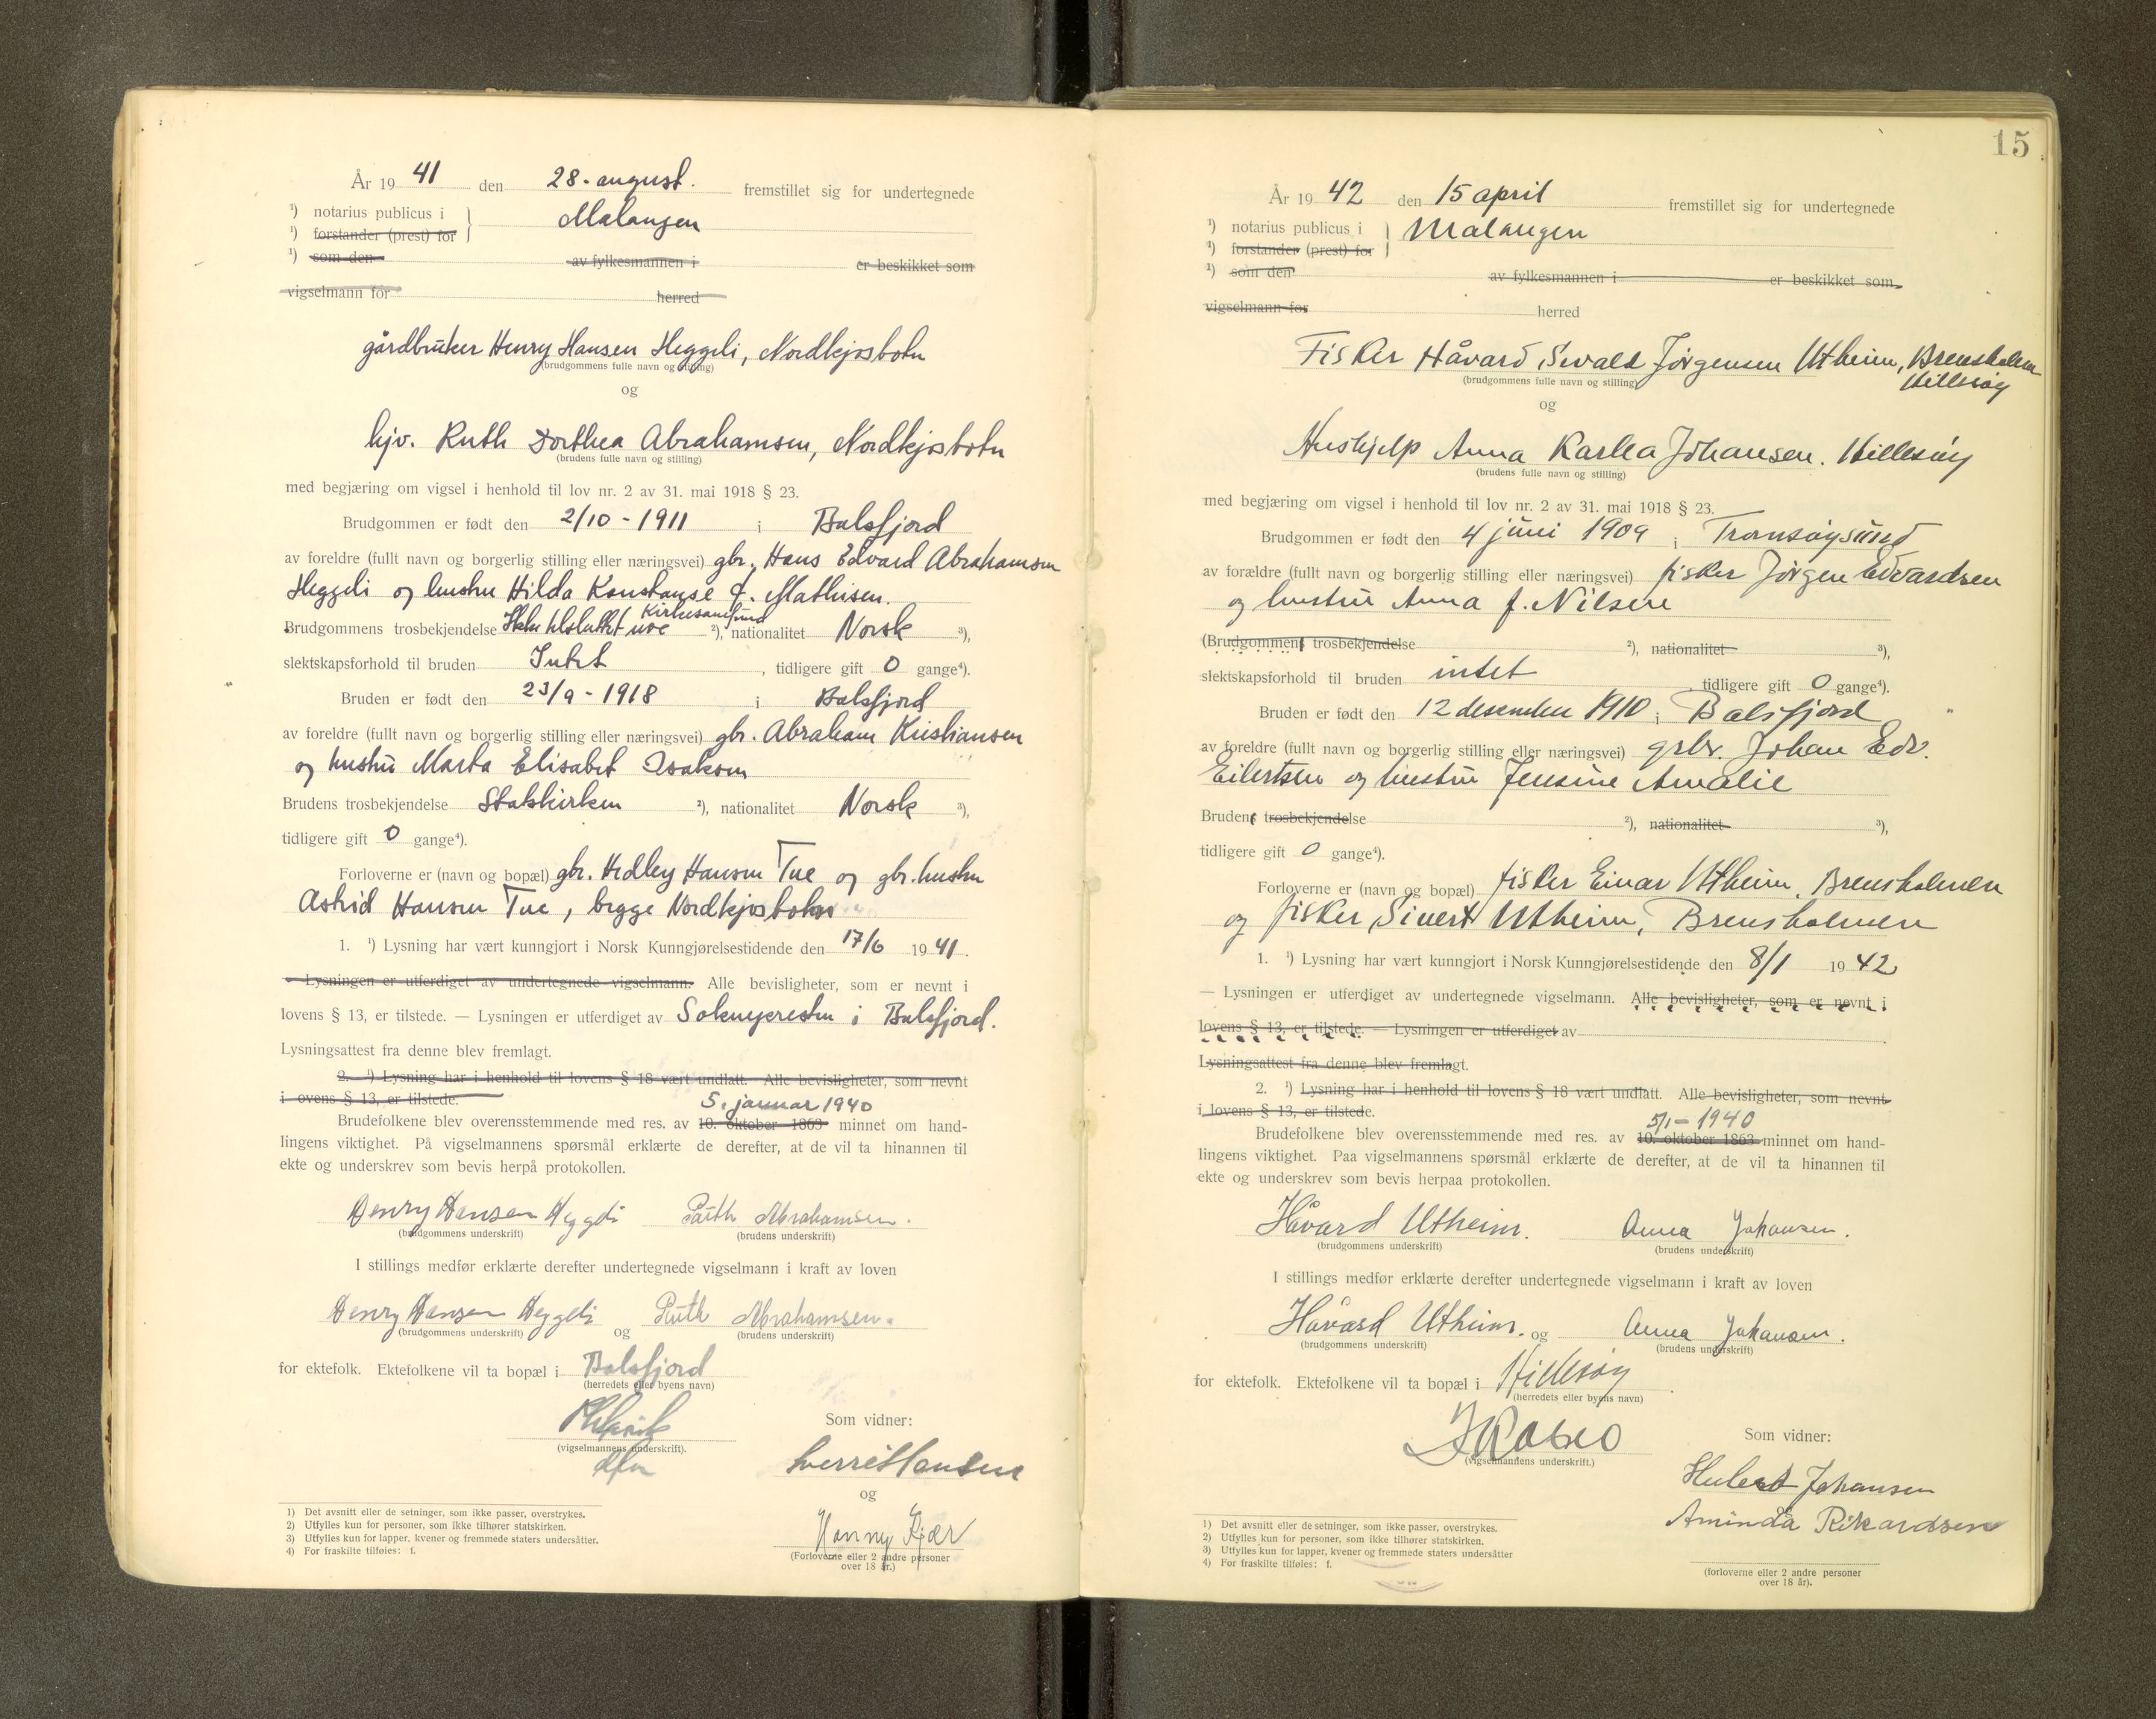 År 1941 den 28. august. fremstillet sig for undertegnede
¹) notarius publicus i } Malangen
¹) forstander (prest) for
¹) som den av fylkesmannen i er beskikket som
vigselmann for herred
gårdbruker Henry Hansen Heggeli, Nordkjosbotn
(brudgommens fulle navn og stilling)
og
hjv. Ruth Dorthea Abrahamsen, Nordkjosbotn
(brudens fulle navn og stilling)
med begjæring om vigsel i henhold til lov nr. 2 av 31. mai 1918 § 23.
Brudgommen er født den 2/10 - 1911 i Balsfjord
av foreldre (fullt navn og borgerlig stilling eller næringsvei) gbr. Hans Edvard Abrahamsen
Heggeli og hustru Hilda Konstanse f. Mathisen.
Brudgommens trosbekjendelse Ikke tilsluttet noe Kirkesamfund ²), nationalitet Norsk ³),
slektskapsforhold til bruden Intet, tidligere gift 0 gange⁴).
Bruden er født den 23/9 - 1918 i Balsfjord
av foreldre (fullt navn og borgerlig stilling eller næringsvei) gbr. Abraham Kristiansen
og hustru Marta Elisabet Isaksen
Brudens trosbekjendelse Statskirken ²), nationalitet Norsk ³),
tidligere gift 0 gange⁴).
Forloverne er (navn og bopæl) gbr. Hedley Hansen Tue og gbr. hustru
Astrid Hansen Tue, begge Nordkjosbotn
1. ¹) Lysning har vært kunngjort i Norsk Kunngjørelsestidende den 17/6 1941.
— Lysningen er utferdiget av undertegnede vigselmann. Alle bevisligheter, som er nevnt i
lovens § 13, er tilstede. — Lysningen er utferdiget av Soknepresten i Balsfjord.
Lysningsattest fra denne blev fremlagt.
2. ¹) Lysning har i henhold til lovens § 18 vært undlatt. Alle bevisligheter, som nevnt
i lovens § 13, er tilstede.
5. januar 1940
Brudefolkene blev overensstemmende med res. av 10. oktober 1863 minnet om hand-
lingens viktighet. På vigselmannens spørsmål erklærte de derefter, at de vil ta hinannen til
ekte og underskrev som bevis herpå protokollen.
Henry Hansen Heggeli Ruth Abrahamsen.
(brudgommens underskrift) (brudens underskrift)
I stillings medfør erklærte derefter undertegnede vigselmann i kraft av loven
Henry Hansen Heggeli og Ruth Abrahamsen.
(brudgommens underskrift) (brudens underskrift)
for ektefolk. Ektefolkene vil ta bopæl i Balsfjord
(herredets eller byens navn)
Som vidner:
(vigselmannens underskrift).
Sverre Hansen
og
Hanny Kjær
(Forloverne eller 2 andre personer
over 18 år.)
1) Det avsnitt eller de setninger, som ikke passer, overstrykes.
2) Utfylles kun for personer, som ikke tilhører statskirken.
3) Utfylles kun for lapper, kvener og fremmede staters undersåtter.
4) For fraskilte tilføies: f.
15
År 1942 den 15 april fremstillet sig for undertegnede
¹) notarius publicus i } Malangen
¹) forstander (prest) for
¹) som den av fylkesmannen i er beskikket som
vigselmann for herred
Fisker Håvard Sevald Jørgensen Utheim, Brensholmen
Hillesøy
(brudgommens fulle navn og stilling)
og
Hushjelp Anna Karlea Johansen. Hillesøy
(brudens fulle navn og stilling)
med begjæring om vigsel i henhold til lov nr. 2 av 31. mai 1918 § 23.
Brudgommen er født den 4 juni 1909 i Tromsøysund
av forældre (fullt navn og borgerlig stilling eller næringsvei) fisker Jørgen Edvardsen
og hustru Anna f. Nilsen
(Brudgommens trosbekjendelse ²), nationalitet ³),
slektskapsforhold til bruden intet, tidligere gift 0 gange⁴).
Bruden er født den 12 desember 1910 i Balsfjord
av foreldre (fullt navn og borgerlig stilling eller næringsvei) grbr. Johan Edv.
Eilertsen og hustru Jensine Amalie
Brudens trosbekjendelse ²), nationalitet ³),
tidligere gift 0 gange⁴).
Forloverne er (navn og bopæl) fisker Einar Utheim, Brensholmen
og fisker Sivert Utheim, Brensholmen
1. ¹) Lysning har vært kunngjort i Norsk Kunngjørelsestidende den 8/1 1942
— Lysningen er utferdiget av undertegnede vigselmann. Alle bevisligheter, som er nevnt i
lovens § 13, er tilstede. — Lysningen er utferdiget av
Lysningsattest fra denne blev fremlagt.
2. ¹) Lysning har i henhold til lovens § 18 vært undlatt. Alle bevisligheter, som nevnt
i lovens § 13, er tilstede.
5/1 - 1940
Brudefolkene blev overensstemmende med res. av 10. oktober 1863 minnet om hand-
lingens viktighet. Paa vigselmannens spørsmål erklærte de derefter, at de vil ta hinannen til
ekte og underskrev som bevis herpaa protokollen.
Håvard Utheim. Anna Johansen.
(brudgommens underskrift) (brudens underskrift)
I stillings medfør erklærte derefter undertegnede vigselmann i kraft av loven
Håvard Utheim. og Anna Johansen.
(brudgommens underskrift) (brudens underskrift)
for ektefolk. Ektefolkene vil ta bopæl i Hillesøy
(herredets eller byens navn)
Som vidner:
(vigselmannens underskrift.)
Johansen
Aminda Rikardsen
(forloverne eller 2 andre personer
over 18 år).
1) Det avsnitt eller de setninger, som ikke passer, overstrykes.
2) Utfylles kun for personer, som ikke tilhører statskirken.
3) Utfylles kun for lapper, kvener og fremmede staters undersåtter
4) For fraskilte tilføies: f.